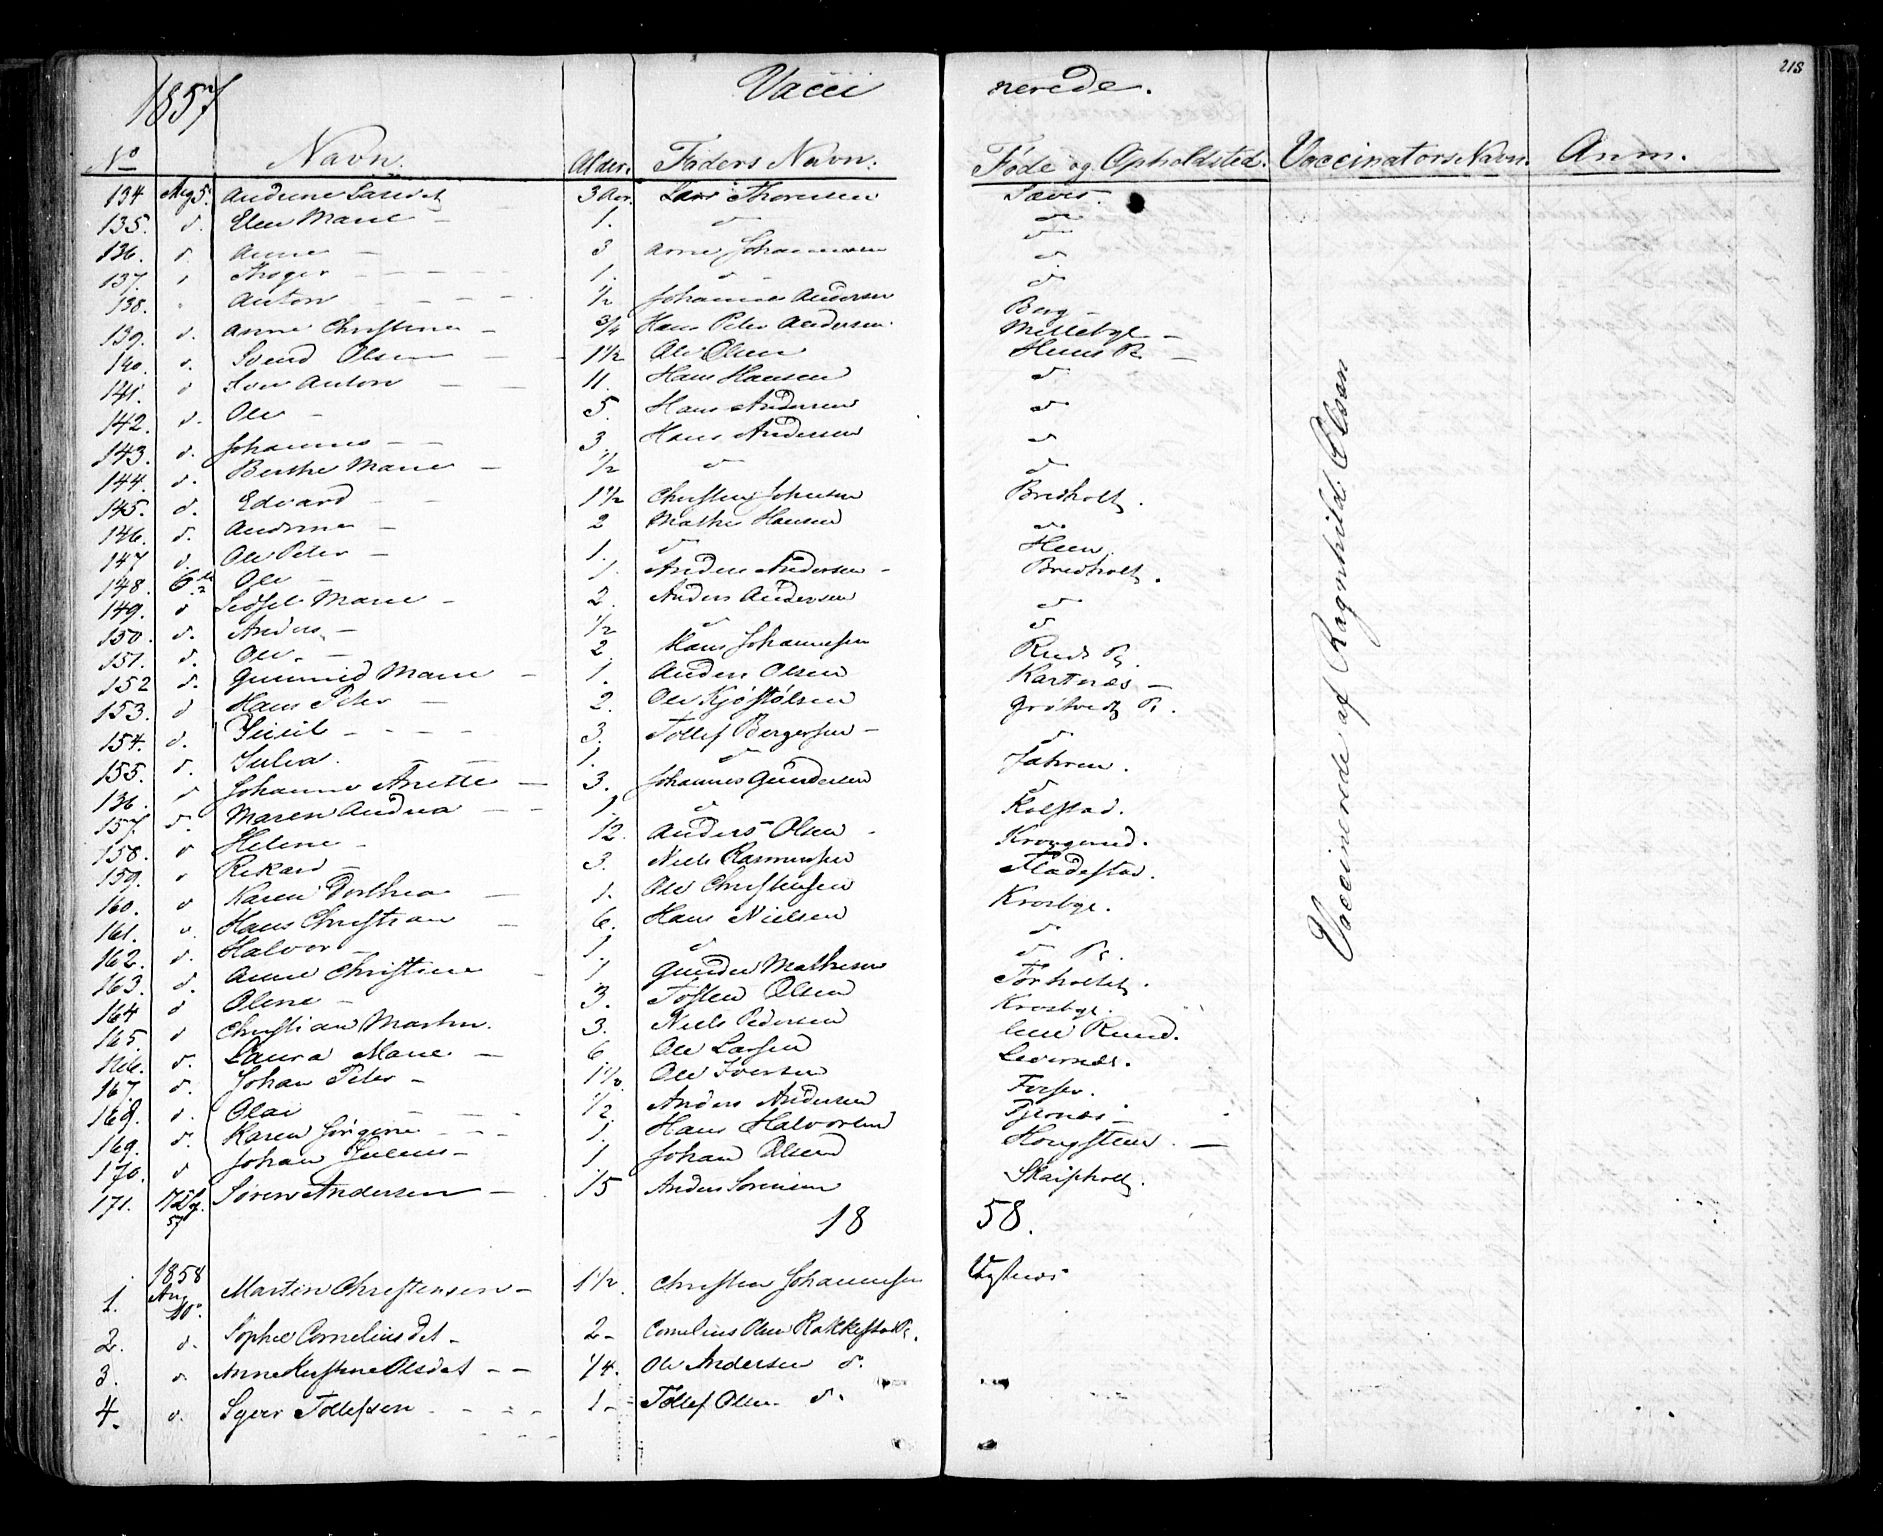 218
1857 Vacci nerede.
No Navn. Alder. Faders Navn. Føde og Opholdsted. Vaccinators Navn. Anm.
134 Aug 5. Andrine Larsdet 3 Aar. Lars Thoresen
135. d. Elen Marie — 1. d d
136. d Anne — 3 Arne Johannesen d
137. Thoger — — — 1. d d
138. Anton — — — 1/2 Johannes Andersen Berg —
139. d. Anne Christine — 3/4 Hans Peter Andersen. Millebye —
140. d. Svend Olsen — 1 1/2 Ole Olsen Huus P. —
141. d Iver Anton — — 11. Hans Hansen d
142. d. Ole — 5. Hans Andersen d
143. d. Johannes — — 3. Hans Andersen d
144. d. Berthe Marie — 1/2 d d
145. d. Edvard — 1 1/2 Christen Johnsen Bredholt.
146. d. Andrine — 2 Mathis Hansen d
147 d. Ole Peter — 1. d Heen.
148. 6te Ole — 1. Anders Andersen — Bredholt.
149. d Sidsel Marie — 2. Anders Andersen d
150. d. Anders — 1/2 d d
151. d. Ole. — 2. Hans Johannesen Ruds P.
152 d. Gunnild Marie — 1. Anders Olsen Kartnæs —
153. d Hans Peter — 2. Ole Kjøstølsen Grøtvedt P.
154. d. — — — 3. Tollef Bergersen — d
155. d. Julia. — 1. d Jahren.
136. d Johanne Anette — 3. Johannes Gundersen d
157. d. Maren Andrea — — 1. d Kolstad.
158. d Helene — 12. Anders Olsen — Krongerud.
159. d Rikard — 3. Niels Rasmussen Fladestad.
160. d Karen Dorthea — 1. Ole Christensen Krosbye.
161. d. Hans Christian — 6. Hans Nielsen d
162. d. Halvor — 1. d d P.
163. d. Anne Christine — 1. Gunder Mathisen Torholtet.
164 d Oline — 3. Tosten Olsen Krosbye.
165. d Christian Martin. 3. Niels Pedersen Ruud.
166. d. Laura Marie — 6. Ole Larsen Levernæs.
167. d. Johan Peter — 1 1/2. Ole Iversen
168. d. Olai — 1/2 Anders Andersen Tjernæs —
169. d. Karen Jørgine — — 1. Hans Halvorsen Hougsteen. —
170. d Johan Julius — 1. Johan Olsen
171. 57 Søren Andersen — 15 Anders Sørensen Skaipholt.
18 58.
1. 1858 Aug 10. Martin Christensen — 1 1/2. Christen Johannesen
2. d. Sophie Corneliusdet — 2 — Cornelius Olsen Rakkestad P.
3. d. Anne Kirstine Olsdat — — 1/4. Ole Andersen d.
4. d. Syver Tollefsen — — — 1 — Tollef Olsen d.
Vaccinerede af Ragnhild Olsen